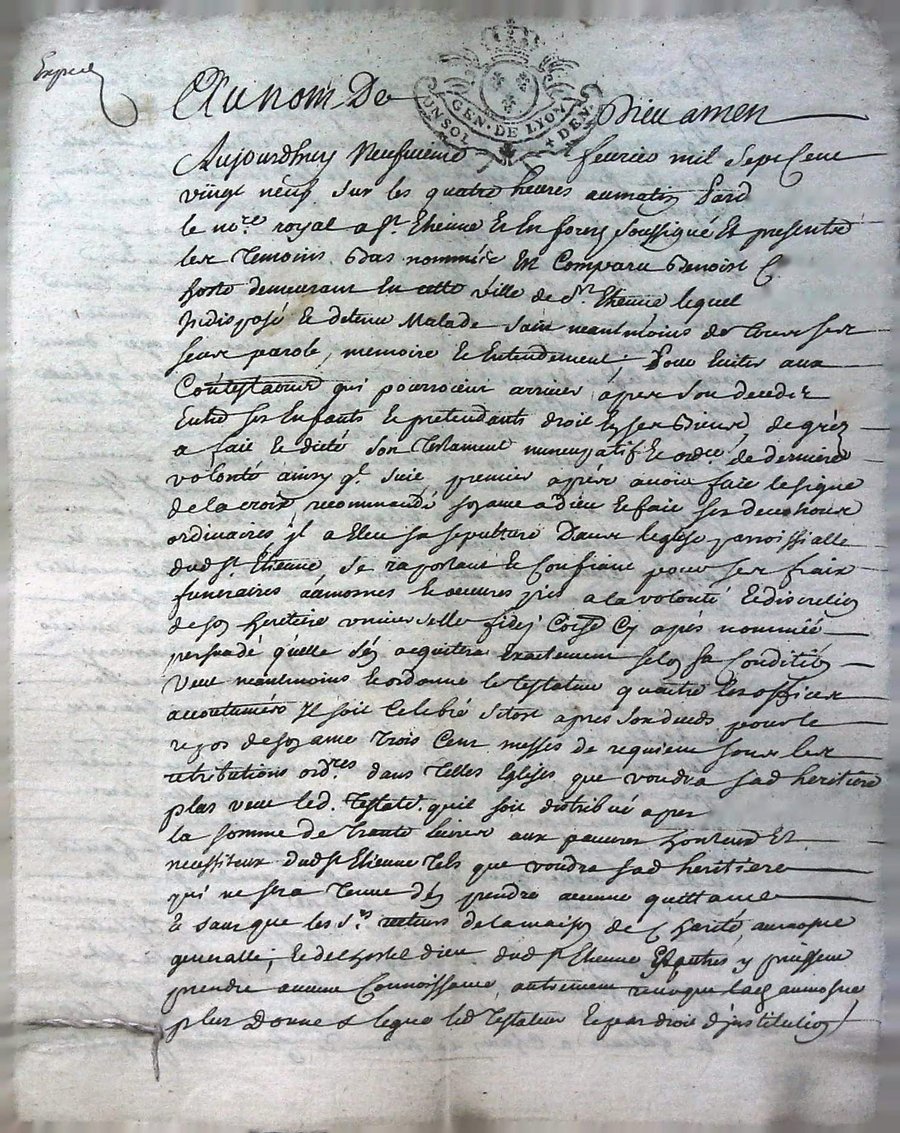 Exped
Au nom De Dieu amen
GEN. DE LYON
Aujourdhuy Neufvieme fevrier mil sept Cent
vingt neuf sur les quatre heures aumatin Pard
le no.re royal a St. Etienne En forez soussigné Et presents
les Temoins Bas nommés Est Comparu Benoist
hoste demeurant En cette ville de St. Etienne lequel
Indisposé Et detenu Malade sain neantmoins de tous ses
sens parole, memoire Et Entendement, Pour Eviter aux
Contestaons qui pourroient arriver apres son decedz
Entre ses Enfants Et pretendants droit En ses Biens, de gréz
a fait Et dicté son Testament nuncupatif Et ordre. de derniere
volonté ainsy q. suit premier apres avoir fait le signe
de la croix recommandé son ame a dieu Et fait ses devotions
ordinaires jl a Eleu sa sepulture Dans leglise parroissialle
dud St. Etienne, Se raportant Et Confiant pour ses fraix
funeraires aumosnes Et oeuvres pies a la volonté Et discretion
de son heritiere universelle fidej Coise Cy apres nommée
persuadé quelle s'en acquittera Exactement selon sa Condition
Veut neantmoins Et ordonne le testateur quoutre les offices
accoutumés Il soit Celebré sitost apres son deceds pour le
repos de son ame Trois Cent messes de requiem sous les
retributions ord.res dans Telles Eglises que voudra sad heritiere
plus veut led. Testateur. quil soit distribué apres
la somme de Trente livres aux pauvres honteux Et
necessiteux dud St Etienne Tels que voudra sad heritiere
qui ne sera Tenue d'en prendre aucune quittance
Et sans que les Srs recteurs de la maison de Charité, aumosne
generalle, Et de lhostel dieu dud St Etienne Et autres y puissent
prendre aucune Connoissance, autrement revoque lad aumosne
plus Donne & legue led Testateur Et par droit d'institution